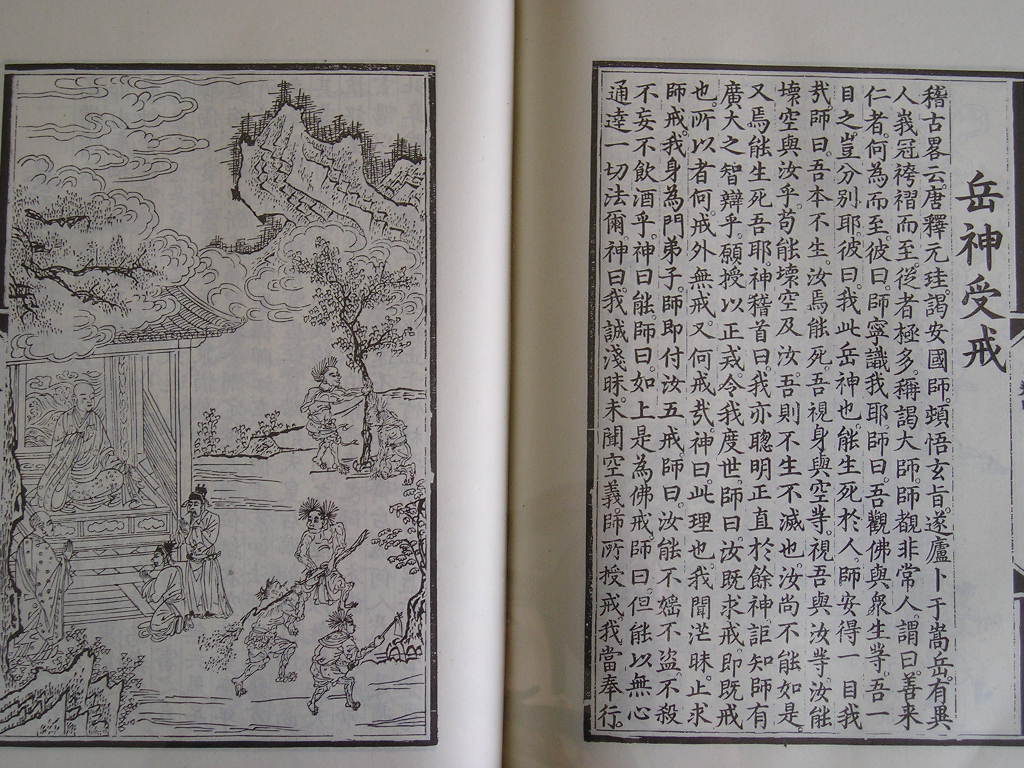 岳神受戒
稽古畧云唐釋元珪謁安國師頓悟玄旨遂廬卜于嵩岳有異
人峩冠袴褶而至從者極多稱謁大師師覩非常人謂曰善来
仁者何為而至彼曰師寧識我耶師曰吾觀佛與衆生等吾一
目之豈分别耶彼曰我此岳神也能生死於人師安得一目我
㢤師曰吾本不生汝焉能死吾視身與空等視吾與汝等汝能
壊空與汝乎苟能壊空及汝吾則不生不滅也汝尚不能如是
又焉能生死吾耶神稽首曰我亦聰明正直於餘神詎知師有
廣大之智辯乎願授以正戒令我度世師曰汝既求戒即既戒
也所以者何戒外無戒又何戒㢤神曰此理也我聞茫昧止求
師戒我身為門弟子師即付汝五戒師曰汝能不婬不盜不殺
不妄不飲酒乎神曰能師曰如上是為佛戒師曰但能以無心
通達一切法爾神曰我誠淺昧未聞空義師所授戒我當奉行